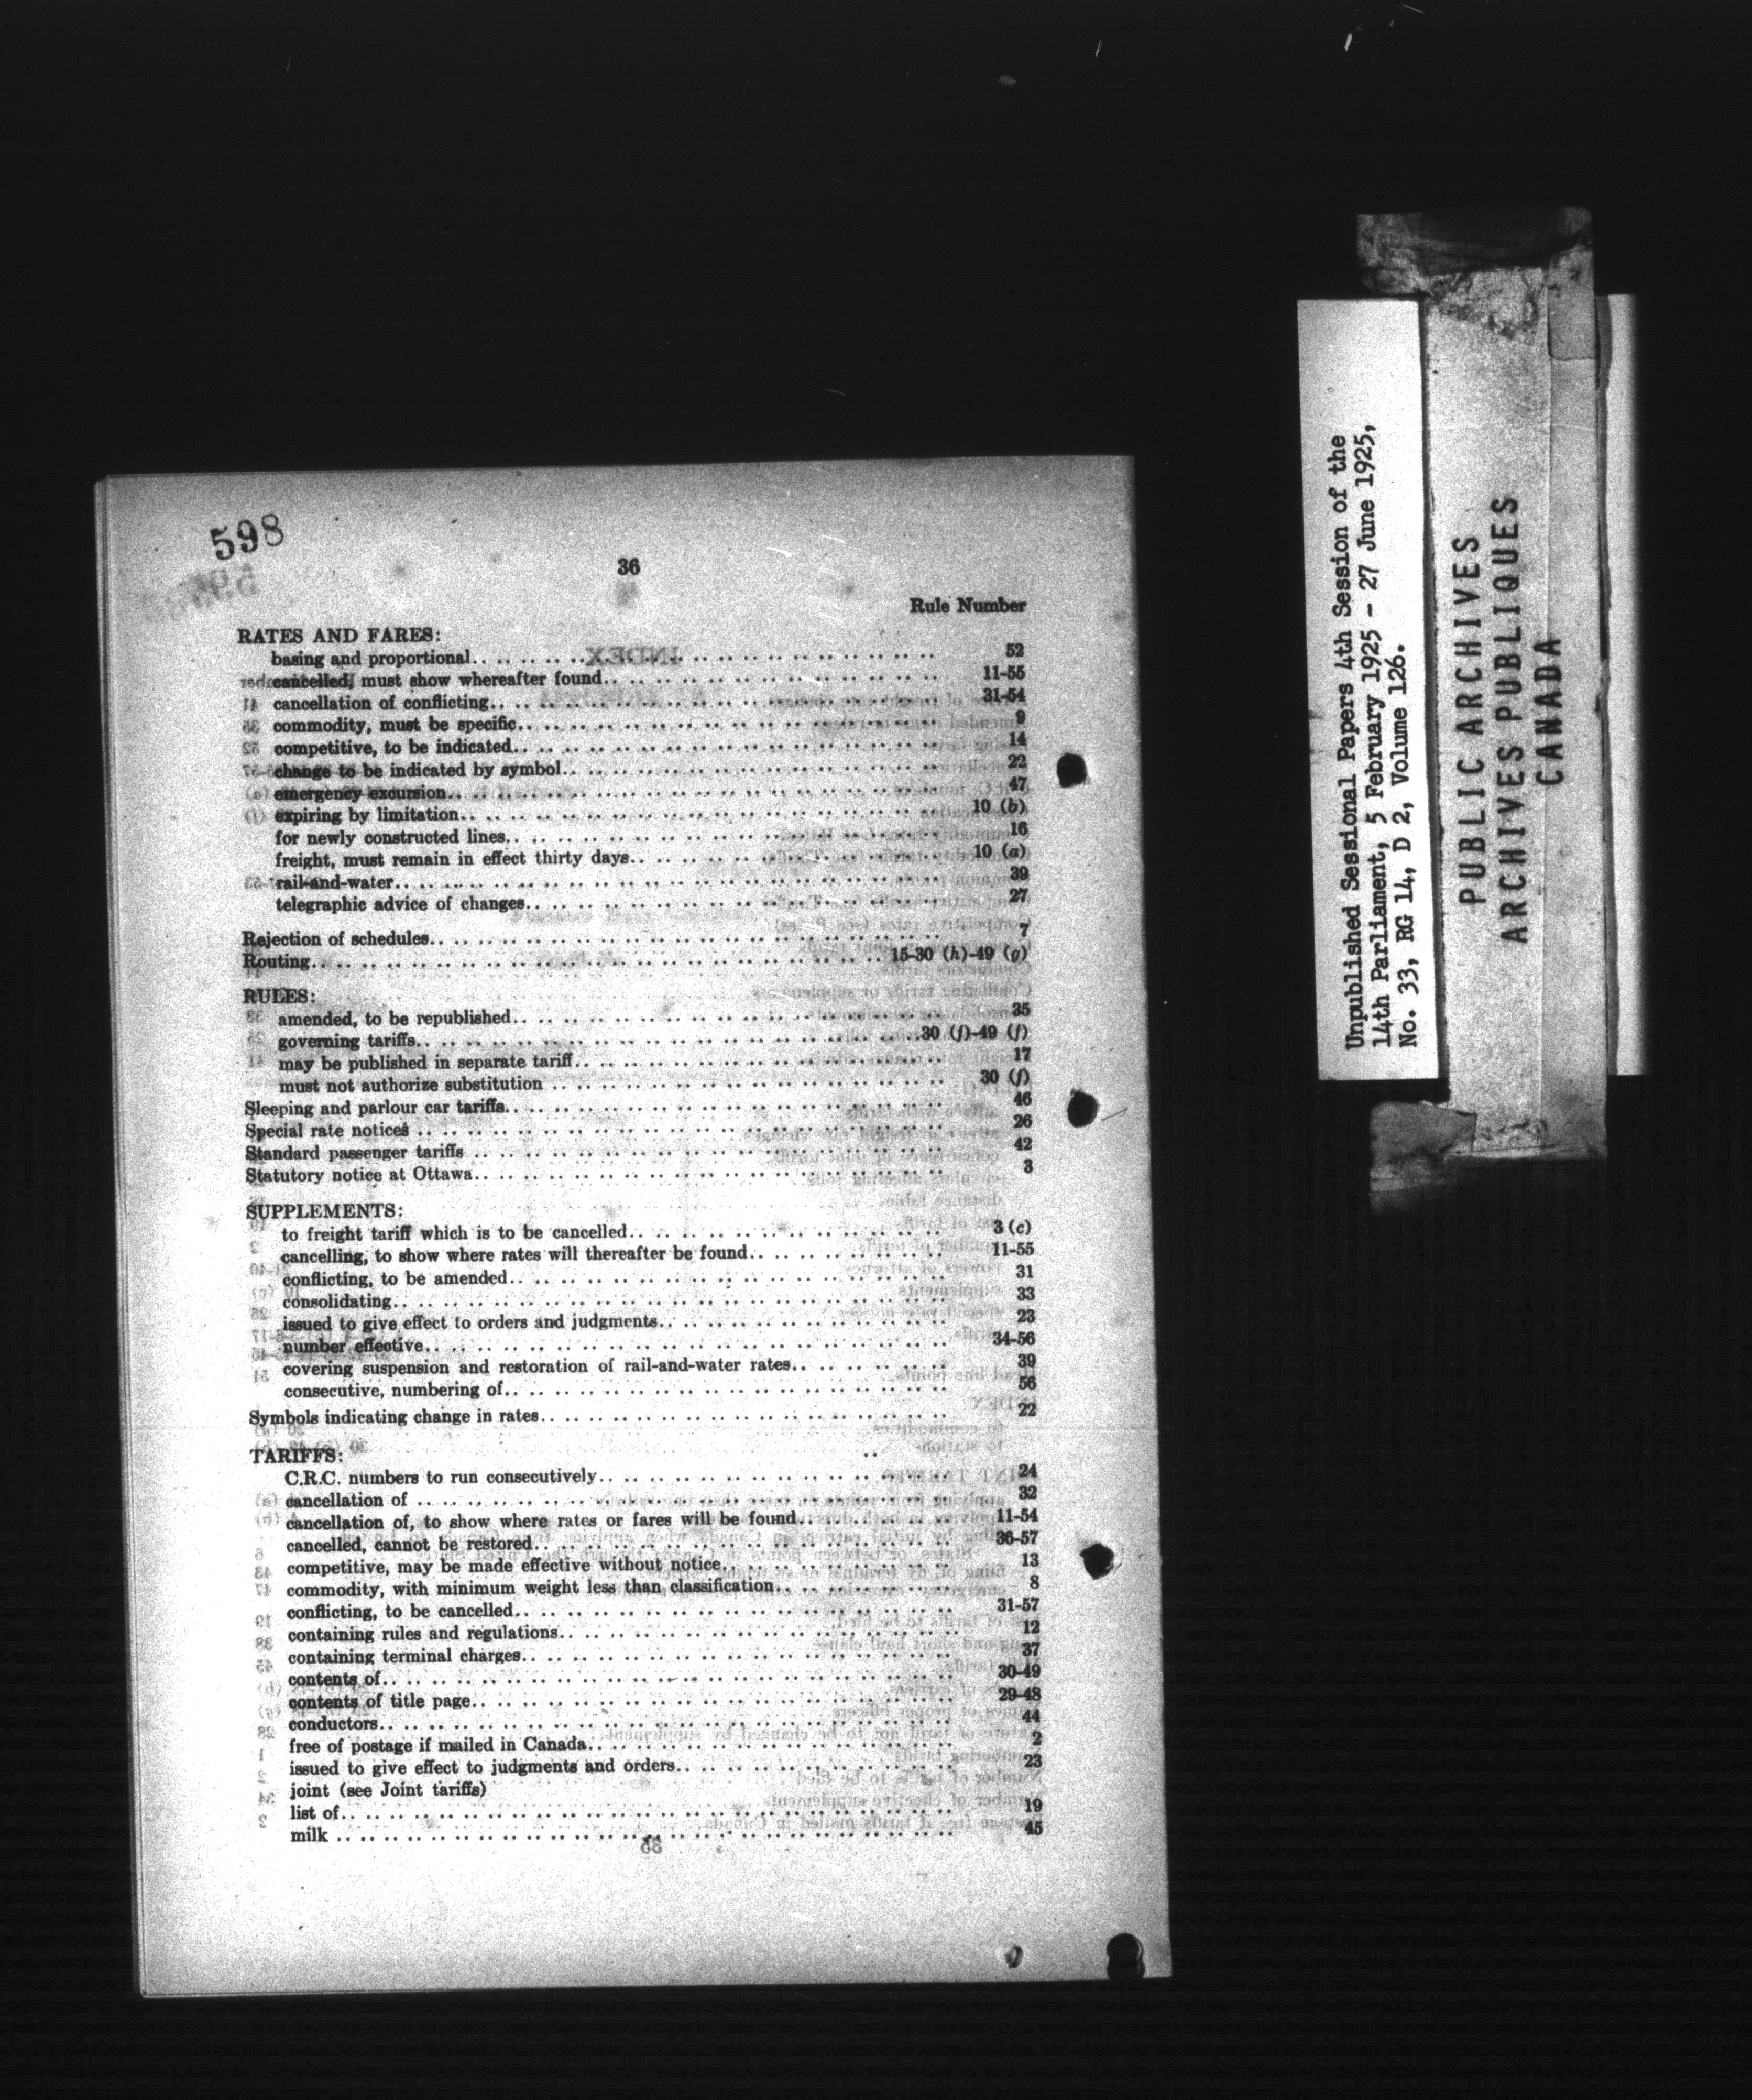 598
36
Rule Number
RATES AND FARES:
basing and proportional.. 52
cancelled, must show whereafter found.. 11-55
cancellation of conflicting.. 31-54
commodity, must be specific.. 9
competitive, to be indicated.. 14
change to be indicated by symbol.. 22
emergency excursion.. 47
expiring by limitation.. 10 (b)
for newly constructed lines.. 16
freight, must remain in effect thirty days.. 10 (a)
rail-and-water.. 39
telegraphic advice of changes.. 27
Rejection of schedules.. 7
Routing.. 15-30 (h)-49 (g)
RULES:
amended, to be republished.. 35
governing tariffs.. 30 (f)-49 (f)
may be published in separate tariff.. 17
must not authorize substitution .. 30 (f)
Sleeping and parlour car tariffs.. 46
Special rate notices .. 26
Standard passenger tariffs .. 42
Statutory notice at Ottawa.. 3
SUPPLEMENTS:
to freight tariff which is to be cancelled.. 3 (c)
cancelling, to show where rates will thereafter be found.. 11-55
conflicting, to be amended.. 31
consolidating.. 33
issued to give effect to orders and judgments.. 23
number effective.. 34-56
covering suspension and restoration of rail-and-water rates.. 39
consecutive, numbering of.. 56
Symbols indicating change in rates.. 22
TARIFFS:
C.R.C. numbers to run consecutively.. 24
cancellation of .. 32
cancellation of, to show where rates or fares will be found.. 11-54
cancelled, cannot be restored.. 36-57
competitive, may be made effective without notice.. 13
commodity, with minimum weight less than classification.. 8
conflicting, to be cancelled.. 31-57
containing rules and regulations.. 12
containing terminal charges.. 37
contents of.. 30-49
contents of title page.. 29-48
conductors.. 44
free of postage if mailed in Canada.. 2
issued to give effect to judgments and orders.. 23
joint (see Joint tariffs)
list of.. 19
milk .. 45
Unpublished Sessional Papers 4th Session of the
14th Parliament, 5 February 1925 - 27 June 1925,
No. 33, RG 14, D 2, Volume 126.
PUBLIC ARCHIVES
ARCHIVES PUBLIQUES
CANADA